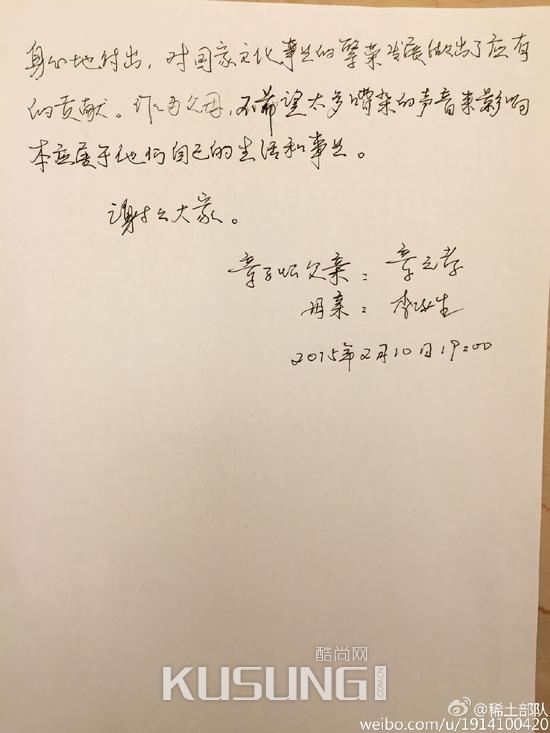 身心地付出，对国家文化事业的繁荣发展做出了应有
的贡献。作为父母，不希望太多嘈杂的声音来影响
本应属于他们自己的生活和事业。
谢谢大家。
章子怡父亲：章元孝
母亲：李涿生
2015年2月10日19:00
酷尚网
KUSUNG!
.COM.CN
@稀土部队
weibo.com/u/1914100420